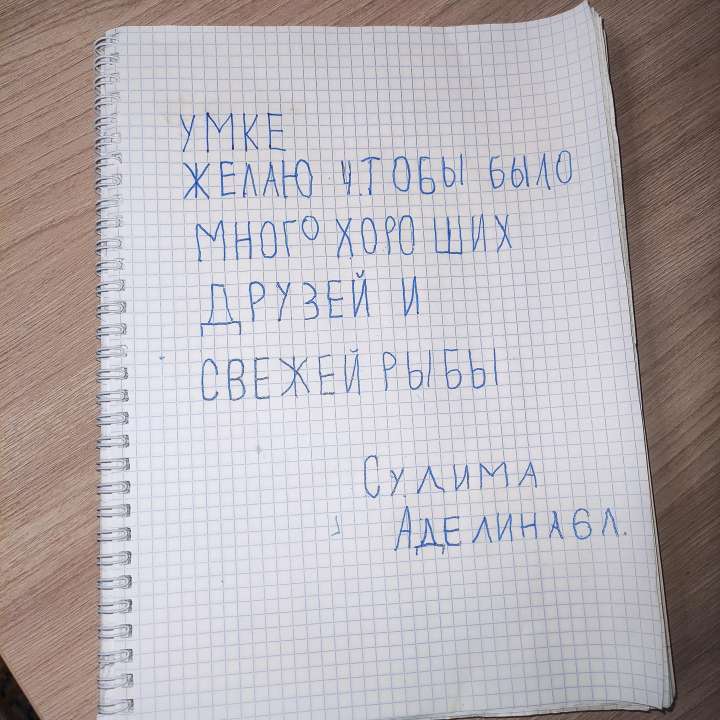 УМКЕ
ЖЕЛАЮ ЧТОБЫ БЫЛО
МНОГО ХОРОШИХ
ДРУЗЕЙ И
СВЕЖЕЙ РЫБЫ
СУЛИМА
АДЕЛИНА 6 Л.